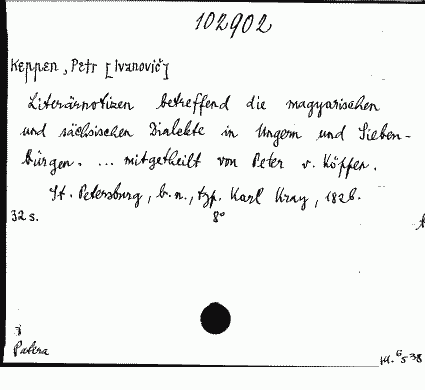 102902
Keppen, Petr [Ivanovič]
Literärnotizen betreffend die magyarischen
und sächsischen Dialekte in Ungern und Sieben-
bürgen. ... mitgetheilt von Peter v. Köppen.
St. Petersburg, b.n., typ. Karl Kray, 1826.
32 s. 8°